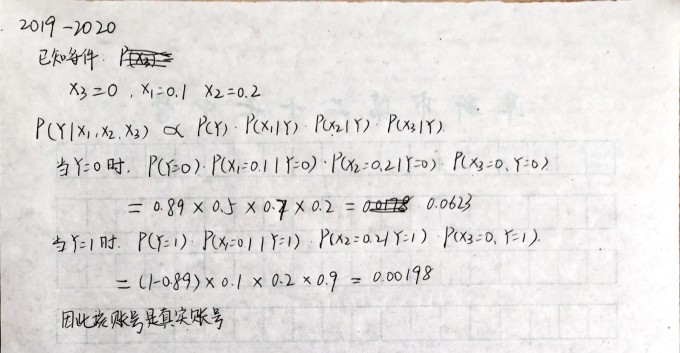 2019-2020
已知条件:
X3=0, X1=0.1 X2=0.2
P(Y|X1,X2,X3) ∝ P(Y)·P(X1|Y)·P(X2|Y)·P(X3|Y).
当Y=0时. P(Y=0)·P(X1=0.1|Y=0)·P(X2=0.2|Y=0)·P(X3=0,Y=0)
= 0.89×0.5×0.7×0.2= 0.0623
当Y=1时. P(Y=1)·P(X1=0.1|Y=1)·P(X2=0.2|Y=1)·P(X3=0,Y=1).
= (1-0.89)×0.1×0.2×0.9=0.00198
因此该账号是真实账号